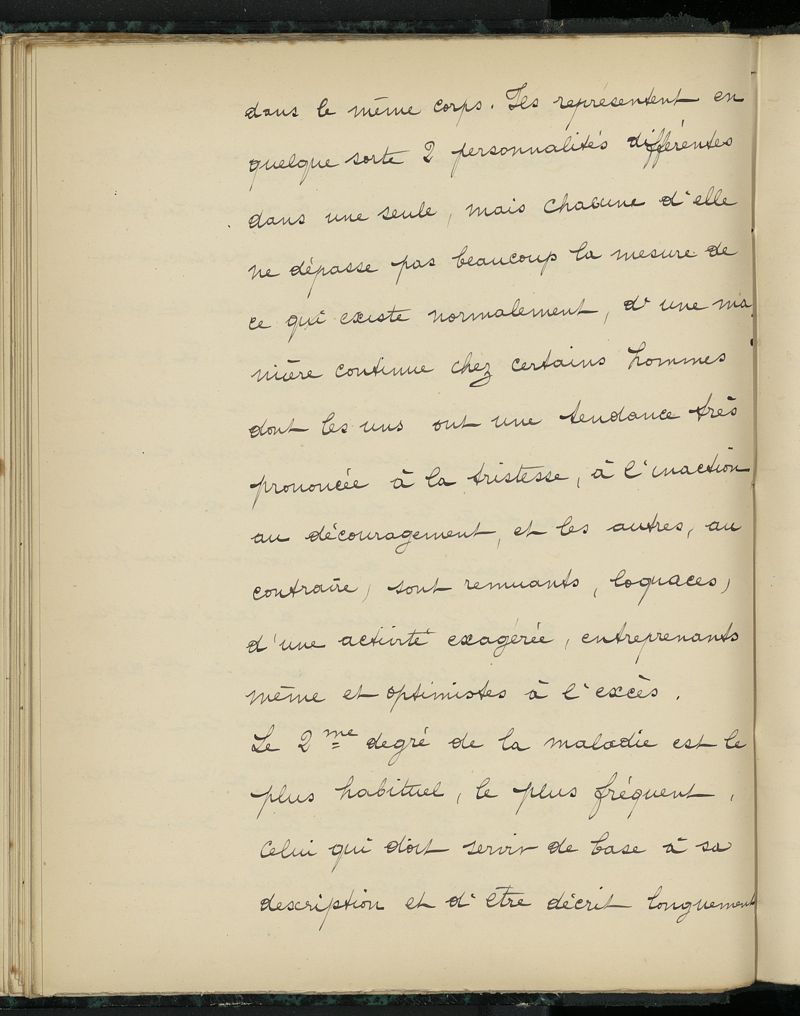 dans le même corps. Ils représentent en
quelque sorte 2 personnalités différentes
dans une seule, mais chacune d'elle
ne dépasse pas beaucoup la mesure de
ce qui existe normalement, d'une ma
nière continue chez certains hommes
dont les uns ont une tendance très
prononcée à la tristesse, à l'inaction
au découragement, et les autres, au
contraire, sont remuants, loquaces,
d'une activité exagérée, entreprenants
même et optimistes à l'excès.
Le 2me degré de la maladie est le
plus habituel, le plus fréquent,
celui qui doit servir de base à sa
description et d'être décrit longuement